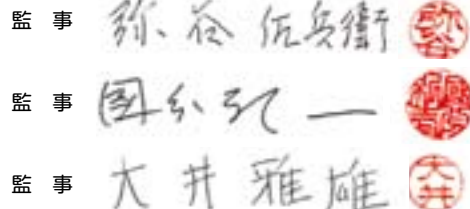 監事 弥谷 佐兵衛 弥谷
監事 国分 一
監事 大井 雅雄 大井